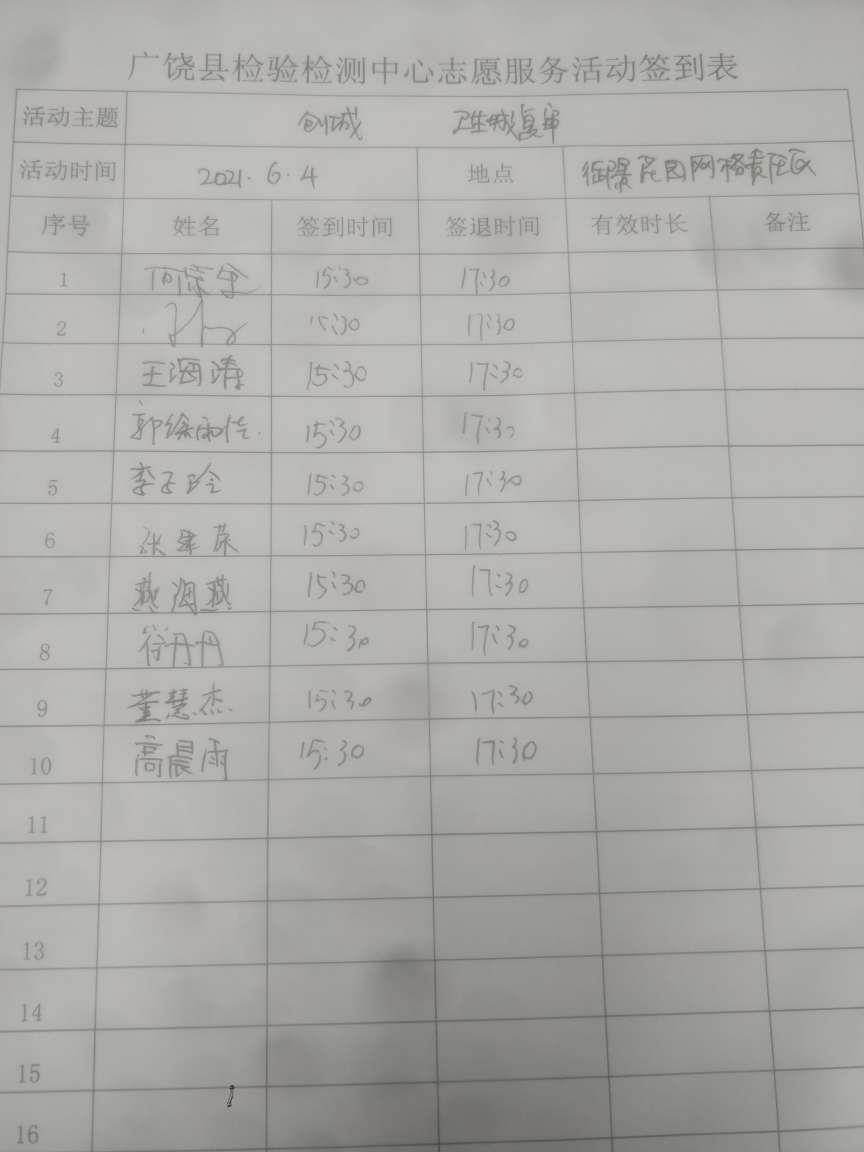 广饶县检验检测中心志愿服务活动签到表
活动主题 创城 卫生城复审
活动时间 2021.6.4 地点 御景花园网格责任区
序号 姓名 签到时间 签退时间 有效时长 备注
1 15:30 17:30
2 15:30 17:30
3 王海涛 15:30 17:30
4 郭徐雨佳 15:30 17:30
5 李子玲 15:30 17:30
6 15:30 17:30
7 燕海燕 15:30 17:30
8 徐丹丹 15:30 17:30
9 董慧杰 15:30 17:30
10 高晨雨 15:30 17:30
11
12
13
14
15
16